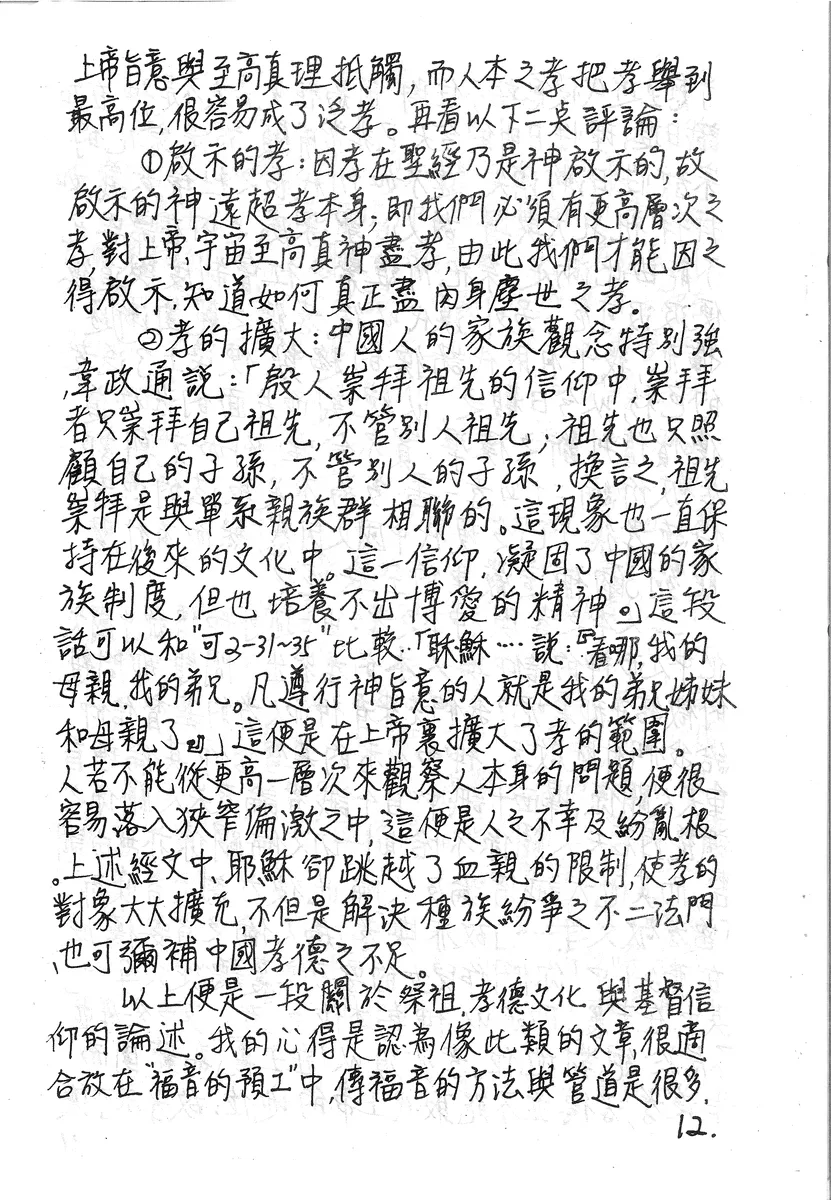 上帝旨意與至高真理抵觸,而人本之孝把孝舉到
最高位,很容易成了泛孝。再看以下二点評論:
①啟示的孝:因孝在聖經乃是神啟示的,故
啟示的神遠超孝本身;即我們必須有更高層次之
孝,對上帝、宇宙至高真神盡孝,由此我們才能因之
得啟示,知道如何真正盡肉身塵世之孝。
②孝的擴大:中國人的家族觀念特別強
,韋政通說:「殷人崇拜祖先的信仰中,崇拜
者只崇拜自己祖先,不管別人祖先;祖先也只照
顧自己的子孫,不管別人的子孫,換言之,祖先
崇拜是與單系親族群相聯的。這現象也一直保
持在後來的文化中。這一信仰,凝固了中國的家
族制度,但也培養不出博愛的精神。」這段
話可以和"可2-31~35"比較..「耶穌…說:『看哪,我的
母親,我的弟兄。凡遵行神旨意的人就是我的弟兄姊妹
和母親了。』」這便是在上帝裏擴大了孝的範圍。
人若不能從更高一層次來觀察人本身的問題,便很
容易落入狹窄偏激之中,這便是人之不幸及紛亂根
。上述經文中、耶穌卻跳越了血親的限制,使孝的
對象大大擴充,不但是解決種族紛爭之不二法門
、也可彌補中國孝德之不足。
以上便是一段關於祭祖,孝德文化與基督信
仰的論述。我的心得是認為像此類的文章,很適
合放在"福音的預工"中,傳福音的方法與管道是很多,
12.